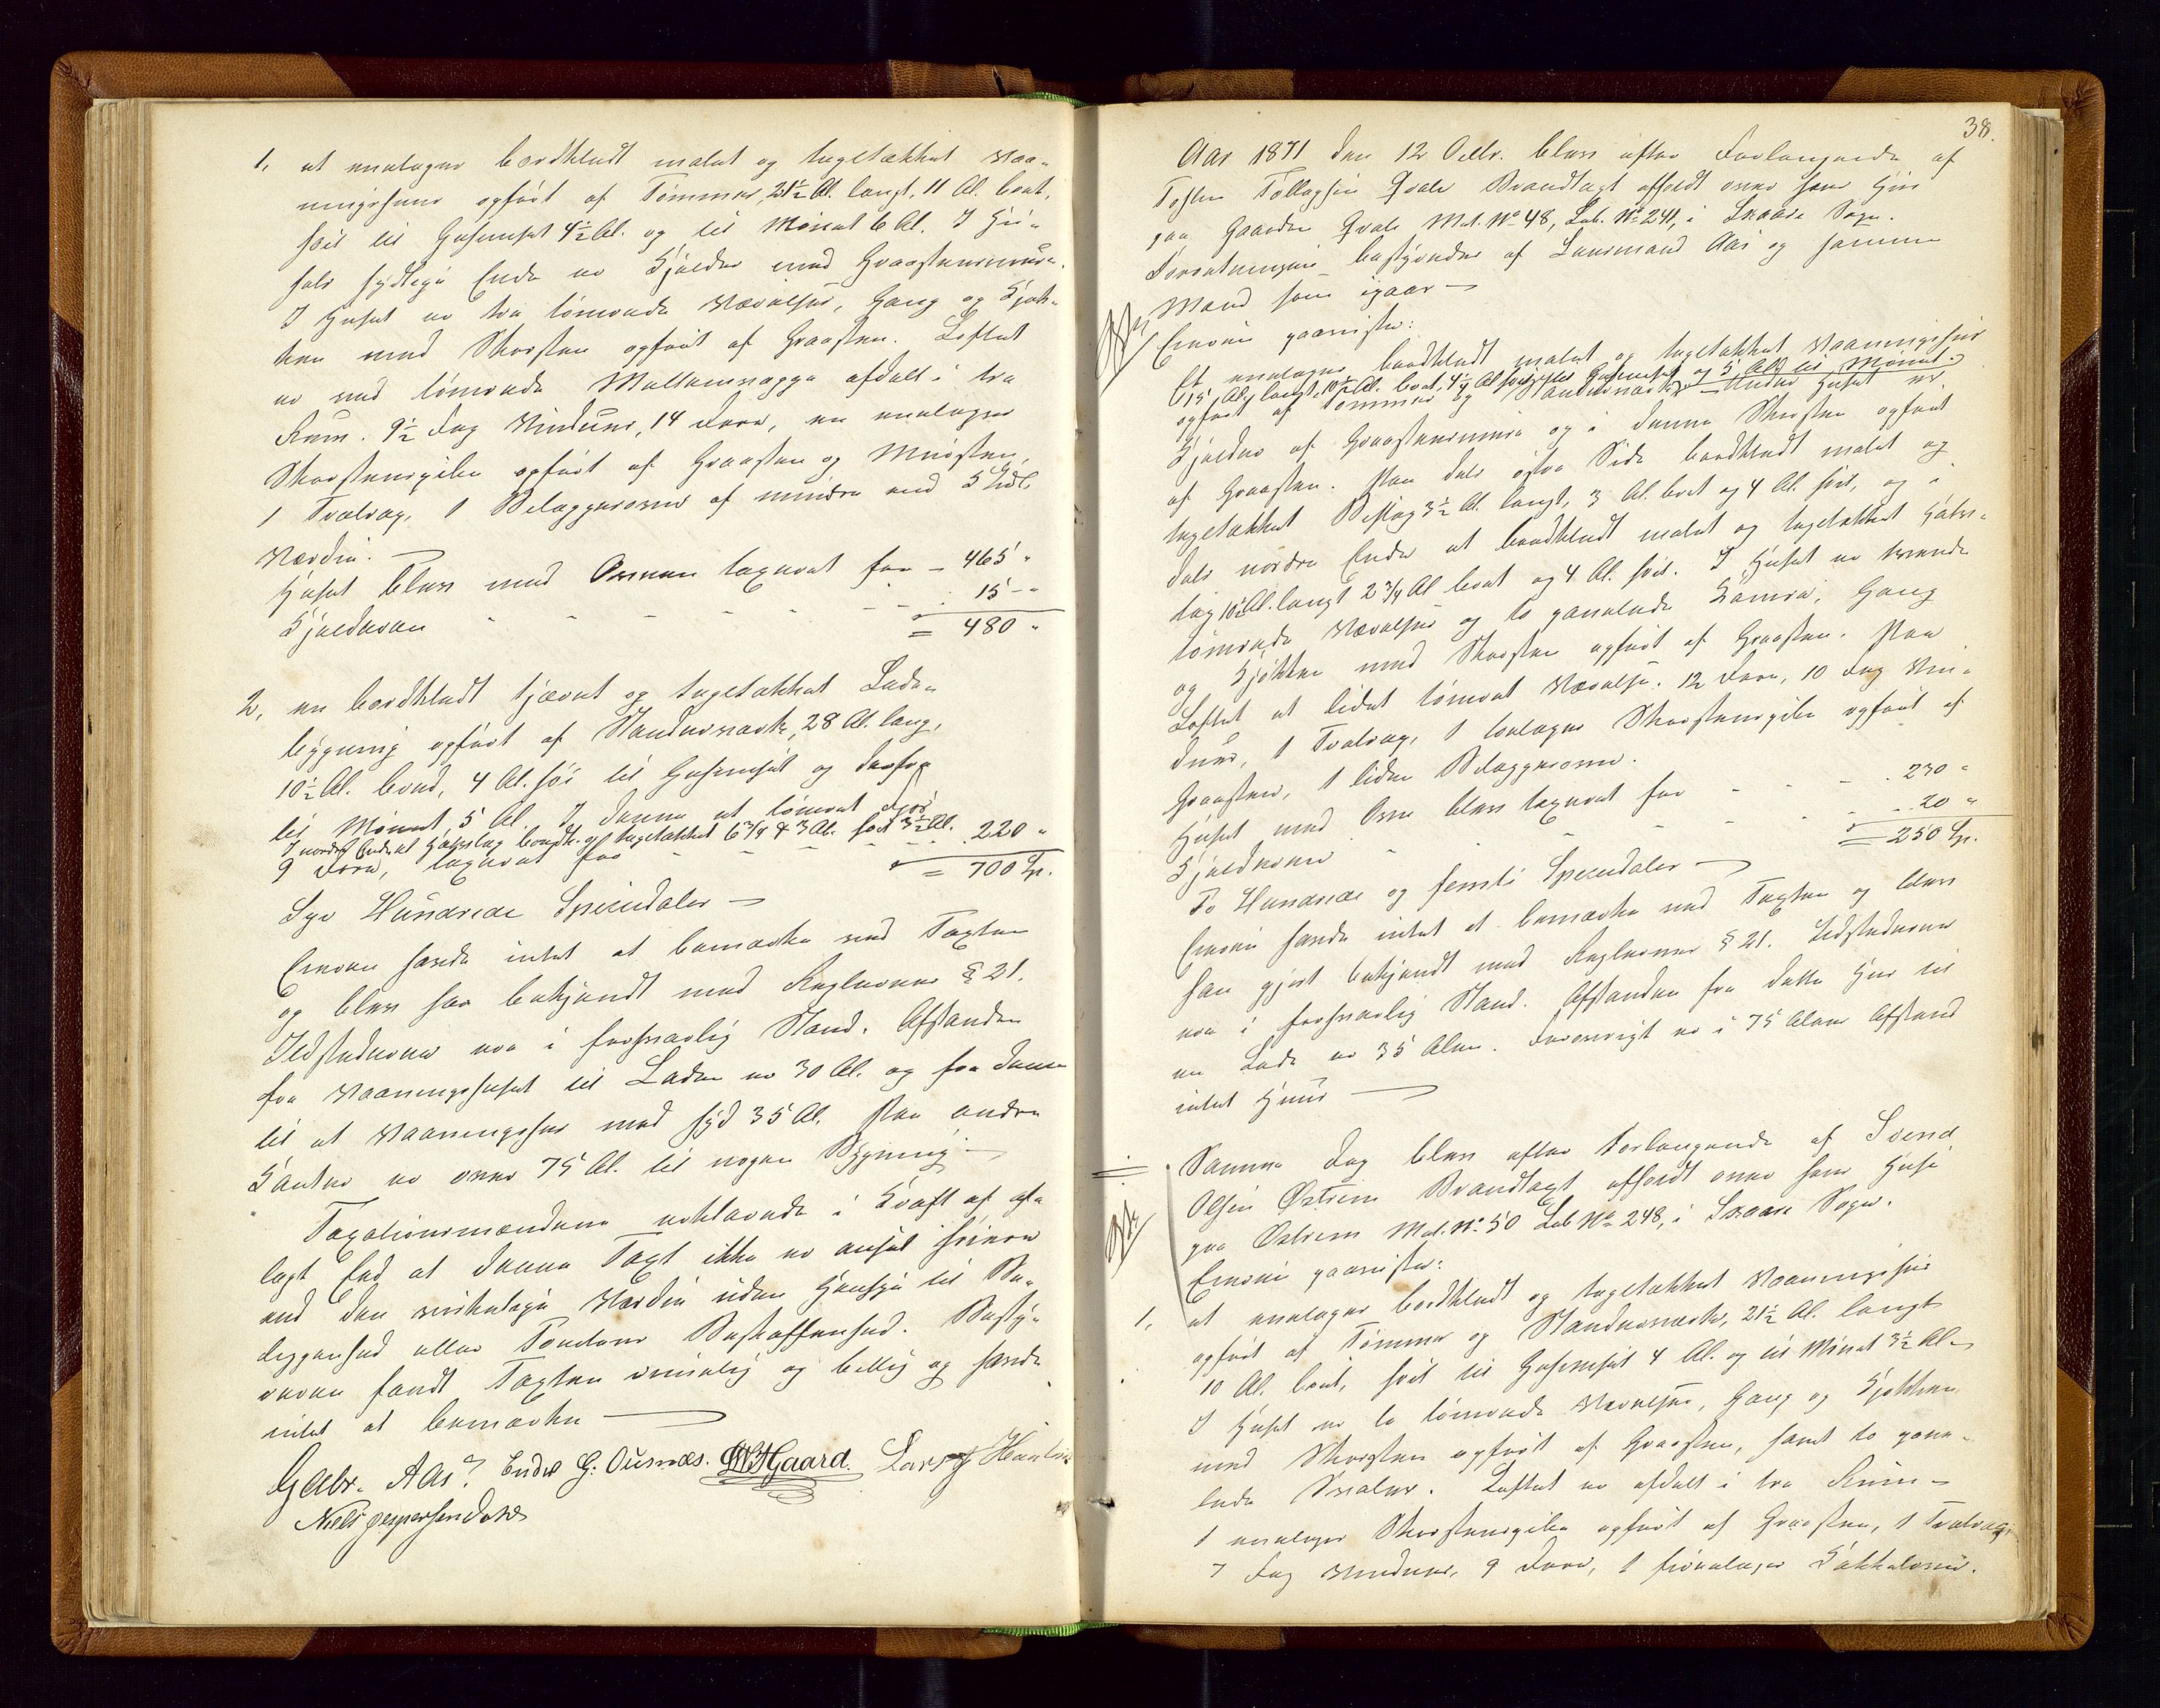 1, et enetages bordklædt malet og tagetækket Vaa-
ningshuus opført af Tømmer, 21½ Al. langt, 11 Al. bredt,
høit til Gesimset 4½ Al. og til Mønet 6 Al. I Hu-
sets sydlige Ende er Kjelder med Graasteensmure.
I Huset er tre tømrede Værelser, Gang og Kjøk-
ken med Skorsten opført af Graasten. Loftet
er med tømrede Mellemvægge afdelt i tre
Rum. 9½ Fag Vinduer, 14 Døre, en enetages
Skorstenspibe opført af Graasten og Mursten,
1 Tralværk, 1 Belæggerovn af mindre end 5 Spdl.
Værdie.
Huset blev med Ovnen taxeret for – 465 "
Kjelderen " - - - - - 15 - "
= 480 "
2, en bordklædt tjæret og tagetækket Lade-
bygning opført af Standerværk, 28 Al. lang,
10½ Al. bred, 4 Al. høi til Gesimset og derfra
til Mønet 5 Al. I denne et tømret Fjøs
I nordre Ende et Halvtag bordk. og tagetækket 6¾ & 3 Al. høit 3½ Al.
9 Døre, taxeret for - - - - 220 "
= 700 Sp.
Syv Hundrede Speciedaler
Eieren havde intet at bemærke ved Taxten
og blev han bekjendt med Reglernes § 21.
Ildstederne ere i forsvarlig Stand. Afstanden
fra Vaaningshuset til Laden er 30 Al. og fra denne
til et Vaaningshus mod syd 35 Al. Paa andre
Kanter er over 75 Al. til nogen Bygning
Taxationsmændene erklærede i Kraft af afla
lagt Eed at denne Taxt ikke er ansat høiere
end den virkelige Værdie uden Hensyn til Be-
liggenhed eller Tomtens Beskaffenhed. Besty-
reren fandt Taxten rimelig og billig og havde
intet at bemærke
Gabr. Aas? Endre G. Ousnæs. Gaard. Lars
Niels Jespersen
38.
Aar 1871 den 12 Octbr. blev efter Forlangende af
Tosten Tollagsen Qvale Brandtaxt afholdt over hans Hus
paa Gaarden Qvale Mat. No 48, Løb. No 241, i Skaare Sogn.
Forretningen bestyredes af Lensmand Aas og samme
Mænd som igaar
Eieren paaviste:
Et enetages bordklædt malet og tagetækket Vaaningshus
(15 Al. langt, 10½ Al. bredt, 4¼ Al. høit til Gesimset og 5 Al. til Mønet.)
opført af Tømmer og Standerværk. Under Huset er
Kjelder af Graasteensmure og i denne Skorsten opført
af Graasten. Paa dets østre Side bordklædt malet og
tagetækket Bislag 3½ Al. langt, 3 Al. bredt og 4 Al. høit, og i
dets nordre Ende et bordklædt malet og tagetækket Halv-
tag 10½ Al. langt 2¾ Al bredt og 4 Al. høit. I Huset er tvende
tømrede Værelser og to panelede Kamre, Gang
og Kjøkken med Skorsten opført af Graasten. Paa
Loftet et lidet tømret Værelse. 12 Døre, 10 Fag Vin-
duer, 1 Tralværk, 1 toetages Skorstenspibe opført af
Graasten, 1 liden Belæggerovn.
Huset med Ovn blev taxeret for - - - 230 "
Kjelderen " - - - - 20 "
= 250 Sp.
To Hundrede og femti Speciedaler
Eieren havde intet at bemærke ved Taxten og blev
han gjort bekjendt med Reglernes § 21. Ildstederne
ere i forsvarlig Stand. Afstanden fra dette Hus til
en Lade er 35 Alen. Forøvrigt er i 75 Alens Afstand
intet Huus
Samme Dag blev efter Forlangende af Svend
Olsen Østrem Brandtaxt afholdt over hans Huse
paa Østrem Mat. No 50 Løb No 248, i Skaare Sogn.
Eieren paaviste:
1, et enetages bordklædt og tagetækket Vaaningshus
opført af Tømmer og Standerværk, 21½ Al. langt
10 Al. bredt, høit til Gesimset 4 Al. og til Mønet 3½ Al.
I Huset er to tømrede Værelser, Gang og Kjøkken
med Skorsten opført af Graasten, samt to pane-
lede Svaler. Loftet er afdelt i tre Rum
1 enetages Skorstenspibe opført af Graasten, 1 Tralværk
7 Fag Vinduer, 9 Døre, 1 treetages Kakkelovn.